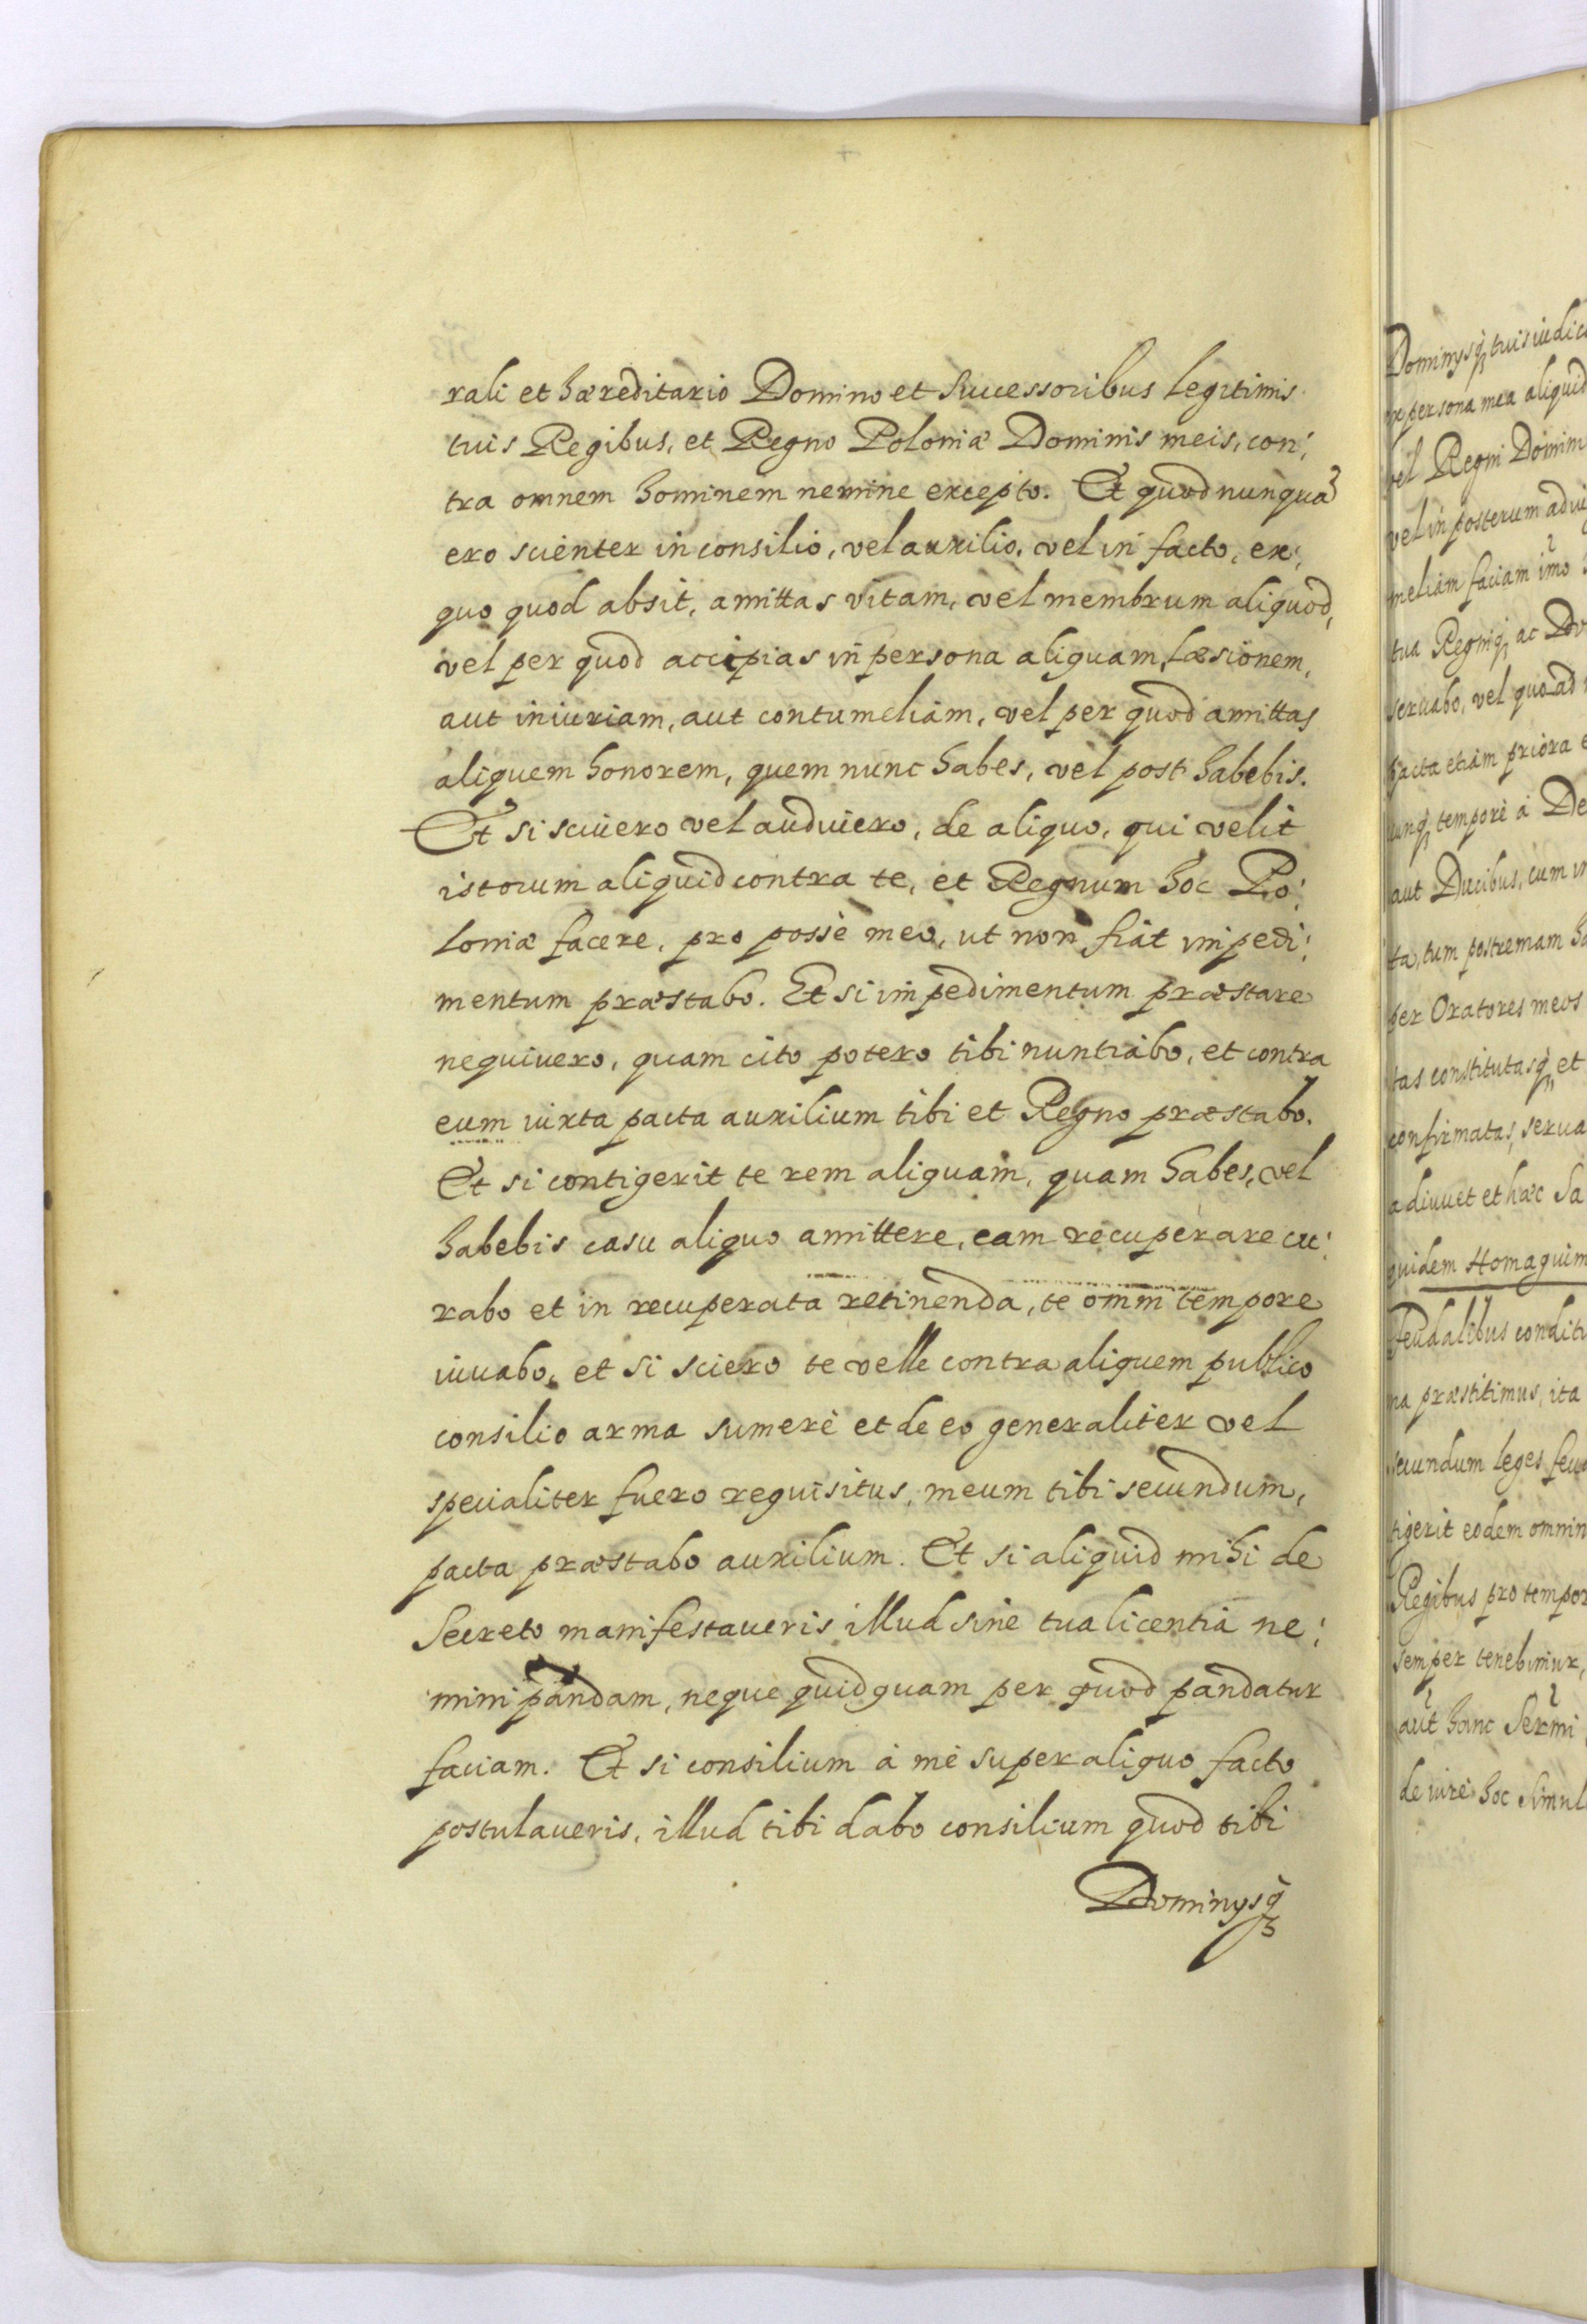 rali et hæreditario Domino et Successoribus legitimis
tuis Regibus, et Regno Poloniæ Dominis meis, con:
tra omnem hominem nemine excepto. Et quod nunquã
ero scienter in consilio, vel auxilio, vel in facto, ex
quo quod absit, amittas vitam, vel membrum aliquod,
vel per quod accipias in persona aliquam læsionem,
aut iniuriam, aut contumeliam, vel per quod amittas
aliquem honorem, quem nunc habes, vel post habebis.
Et si scivero vel audviero, de aliquo, qui velit
istorum aliquid contra te, et Regnum hoc Po:
loniæ facere, pro posse meo, ut non fiat impedi:
mentum præstabo. Et si impedimentum præstare
nequivero, quam cito potero tibi nuntiabo, et contra
eum iuxta pacta auxilium tibi et Regno præstabo.
Et si contigerit te rem aliquam, quam habes, vel
habebis casu aliquo amittere, eam recuperare cu:
rabo et in recuperata retinenda, te omni tempore
iuuabo, et si sciero te velle contra aliquem publico
consilio arma sumere et de eo generaliter vel
specialiter fuero requisitus, meum tibi secundum,
pacta præstabo auxilium. Et si aliquid mihi de
Secreto manifestaueris illud sine tua licentia ne:
mini pandam, neque quidquam per quod pandatur
faciam. Et si consilium à me super aliquo facto
postulaueris, illud tibi dabo consilium quod tibi
Dominysq́ꝫ
Dominysq́ꝫ tuis
persona mea aliquid
vel Regni
vel in posterum
faciam imo
tua Regniq́ꝫ ac
seruabo, vel quo ad
pacta etiam priora
tempore à
aut Ducibus, cum
tum postremam
per Oratores meos
constitutasq́ꝫ et
confirmatas, serua
adiuuet et hæc Sa
quidem Homagium
feudalibus
præstitimus, ita
secundum leges
tigerit eodem
Regibus pro
semper tenebimur,
aut hanc Sermi
de iure hoc simul